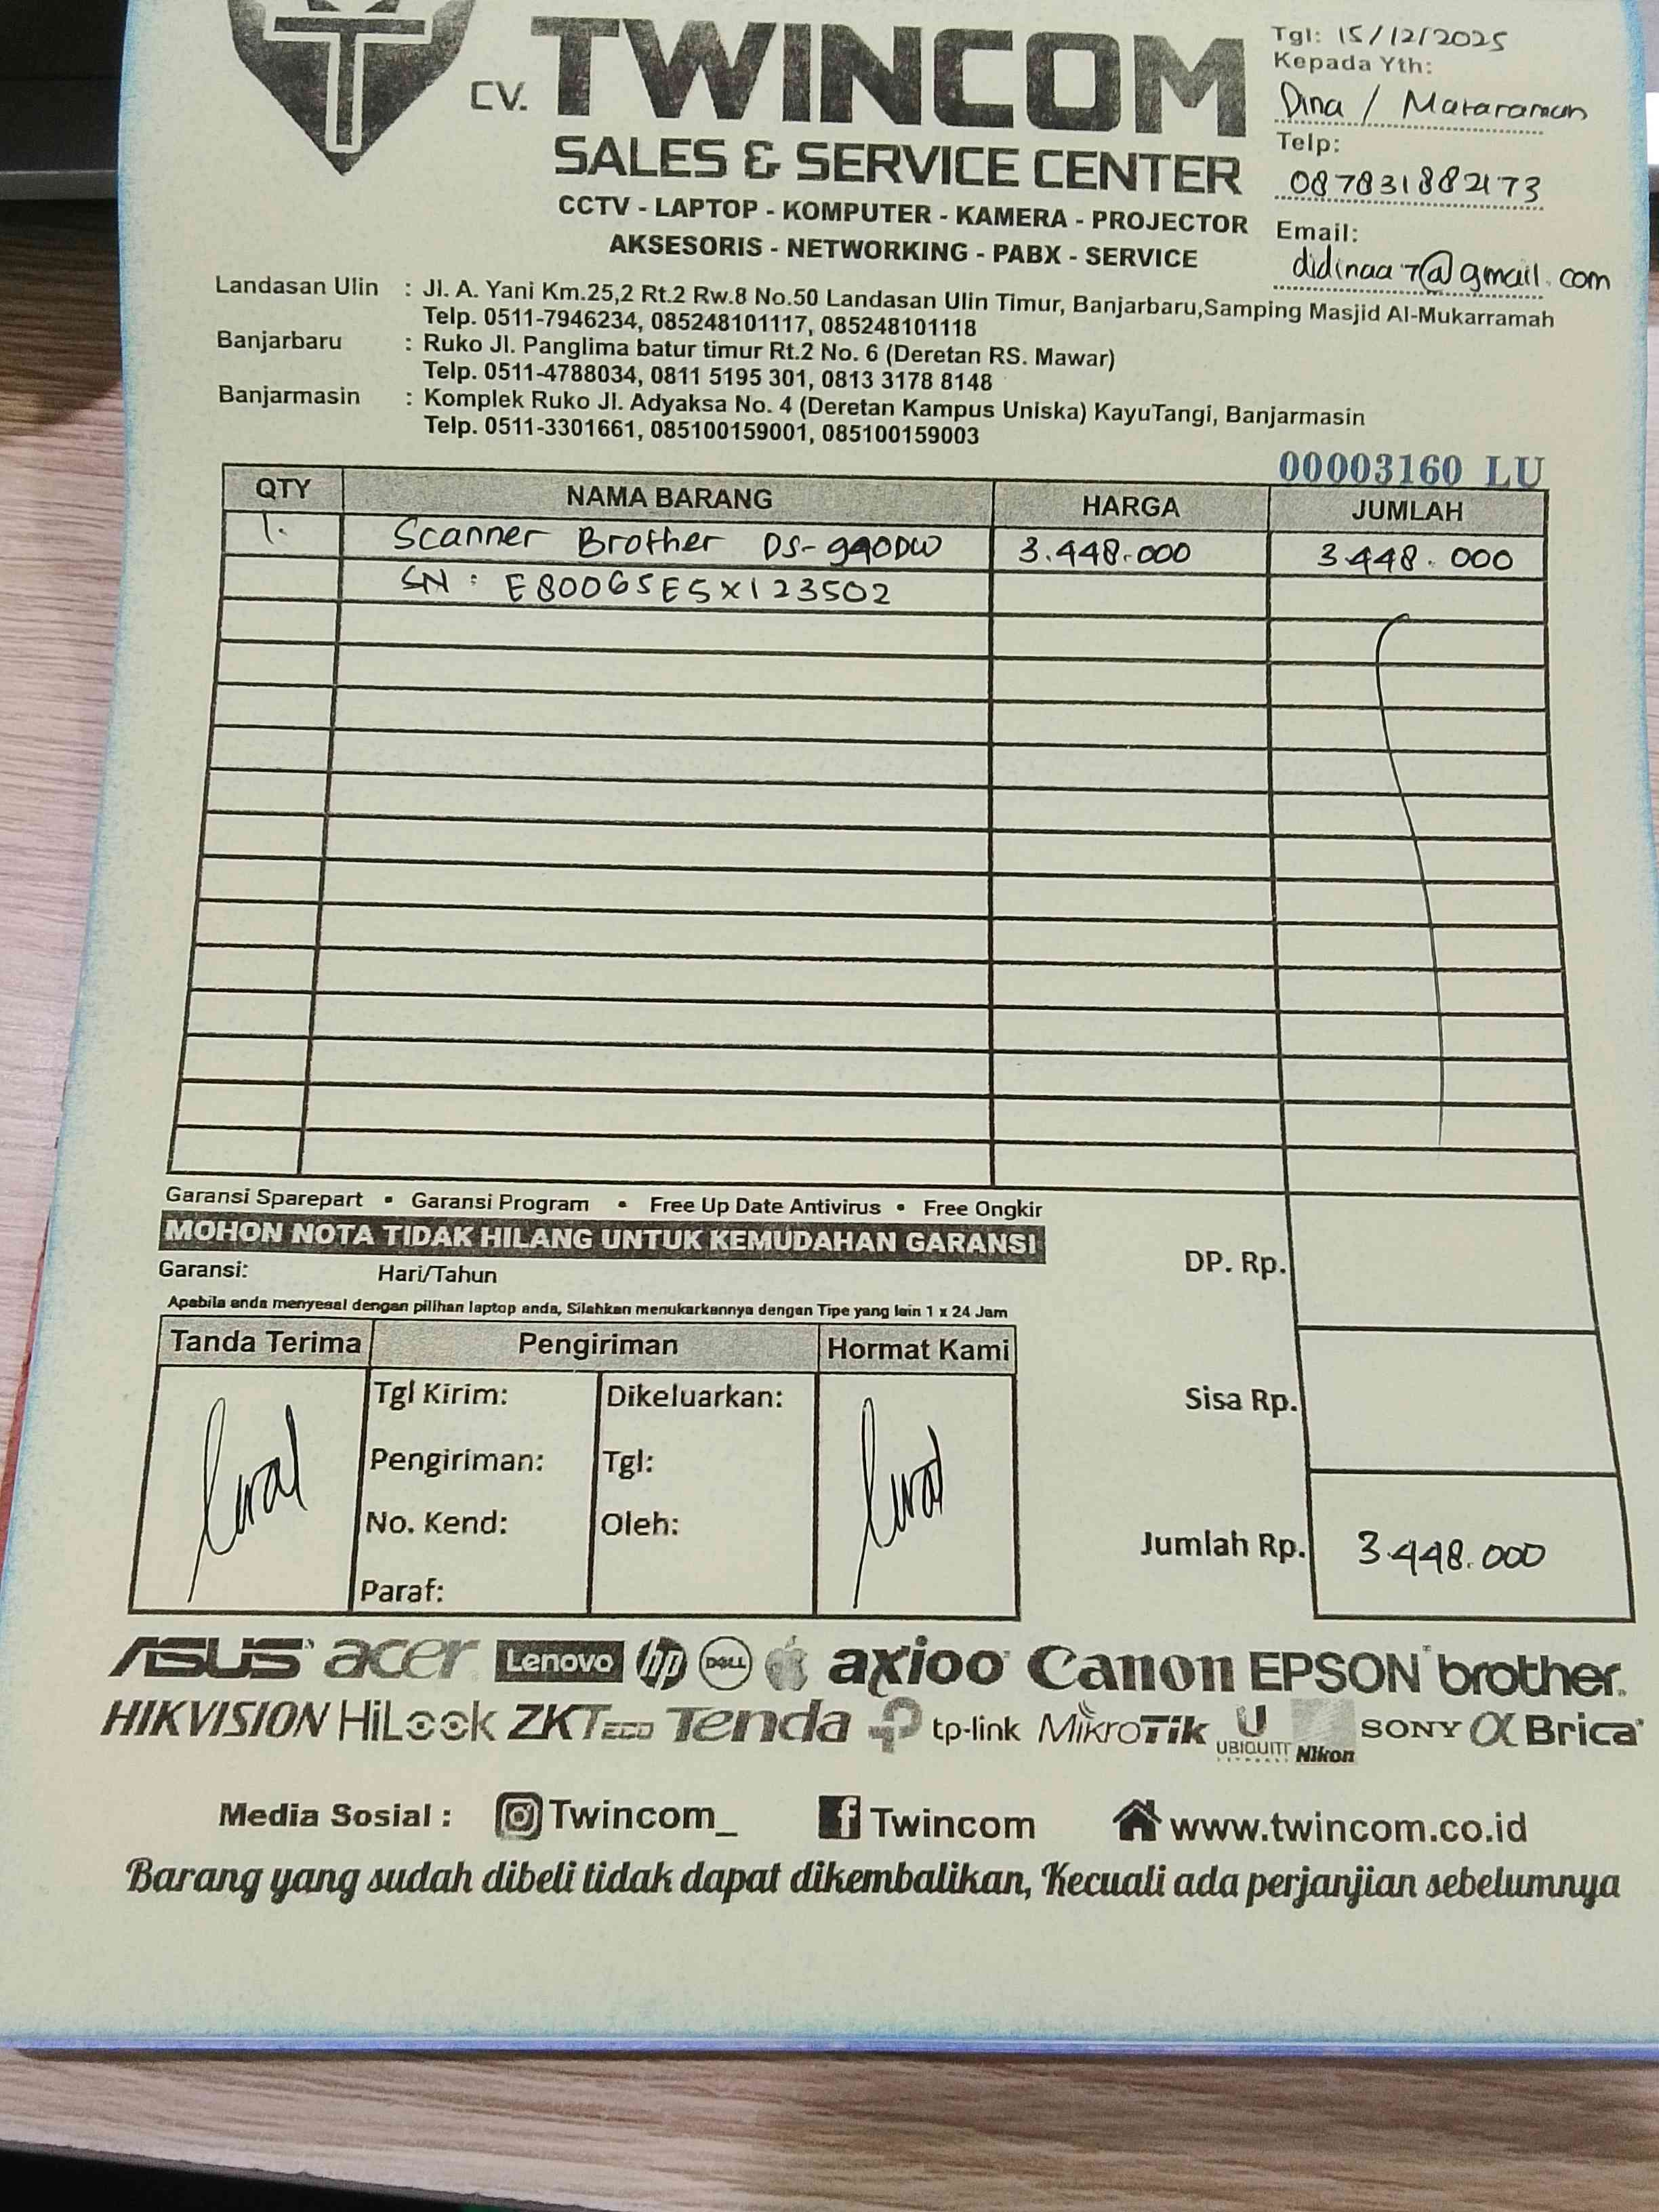 CV. TWINCOM
SALES & SERVICE CENTER
CCTV - LAPTOP - KOMPUTER - KAMERA - PROJECTOR
AKSESORIS - NETWORKING - PABX - SERVICE
Tgl: 15/12/2025
Kepada Yth:
Dina / Mataraman
Telp:
087831882173
Email:
didinaa7@gmail.com
Landasan Ulin : Jl. A. Yani Km.25,2 Rt.2 Rw.8 No.50 Landasan Ulin Timur, Banjarbaru,Samping Masjid Al-Mukarramah
Telp. 0511-7946234, 085248101117, 085248101118
Banjarbaru : Ruko Jl. Panglima batur timur Rt.2 No. 6 (Deretan RS. Mawar)
Telp. 0511-4788034, 0811 5195 301, 0813 3178 8148
Banjarmasin : Komplek Ruko Jl. Adyaksa No. 4 (Deretan Kampus Uniska) KayuTangi, Banjarmasin
Telp. 0511-3301661, 085100159001, 085100159003
00003160 LU
QTY NAMA BARANG HARGA JUMLAH
1. Scanner Brother DS-940DW 3.448.000 3.448.000
SN : E80065E5X123502
Garansi Sparepart • Garansi Program • Free Up Date Antivirus • Free Ongkir
MOHON NOTA TIDAK HILANG UNTUK KEMUDAHAN GARANSI
Garansi: Hari/Tahun
Apabila anda menyesal dengan pilihan laptop anda, Silahkan menukarkannya dengan Tipe yang lain 1 x 24 Jam
DP. Rp.
Sisa Rp.
Jumlah Rp. 3.448.000
Tanda Terima Pengiriman Hormat Kami
Tgl Kirim: Dikeluarkan:
Pengiriman: Tgl:
No. Kend: Oleh:
Paraf:
ASUS acer Lenovo hp DELL axioo Canon EPSON brother
HIKVISION HiLook ZKTeco Tenda tp-link MikroTik U UBIQUITI NETWORKS Nikon SONY α Brica
Media Sosial : Twincom_ f Twincom www.twincom.co.id
Barang yang sudah dibeli tidak dapat dikembalikan, Kecuali ada perjanjian sebelumnya